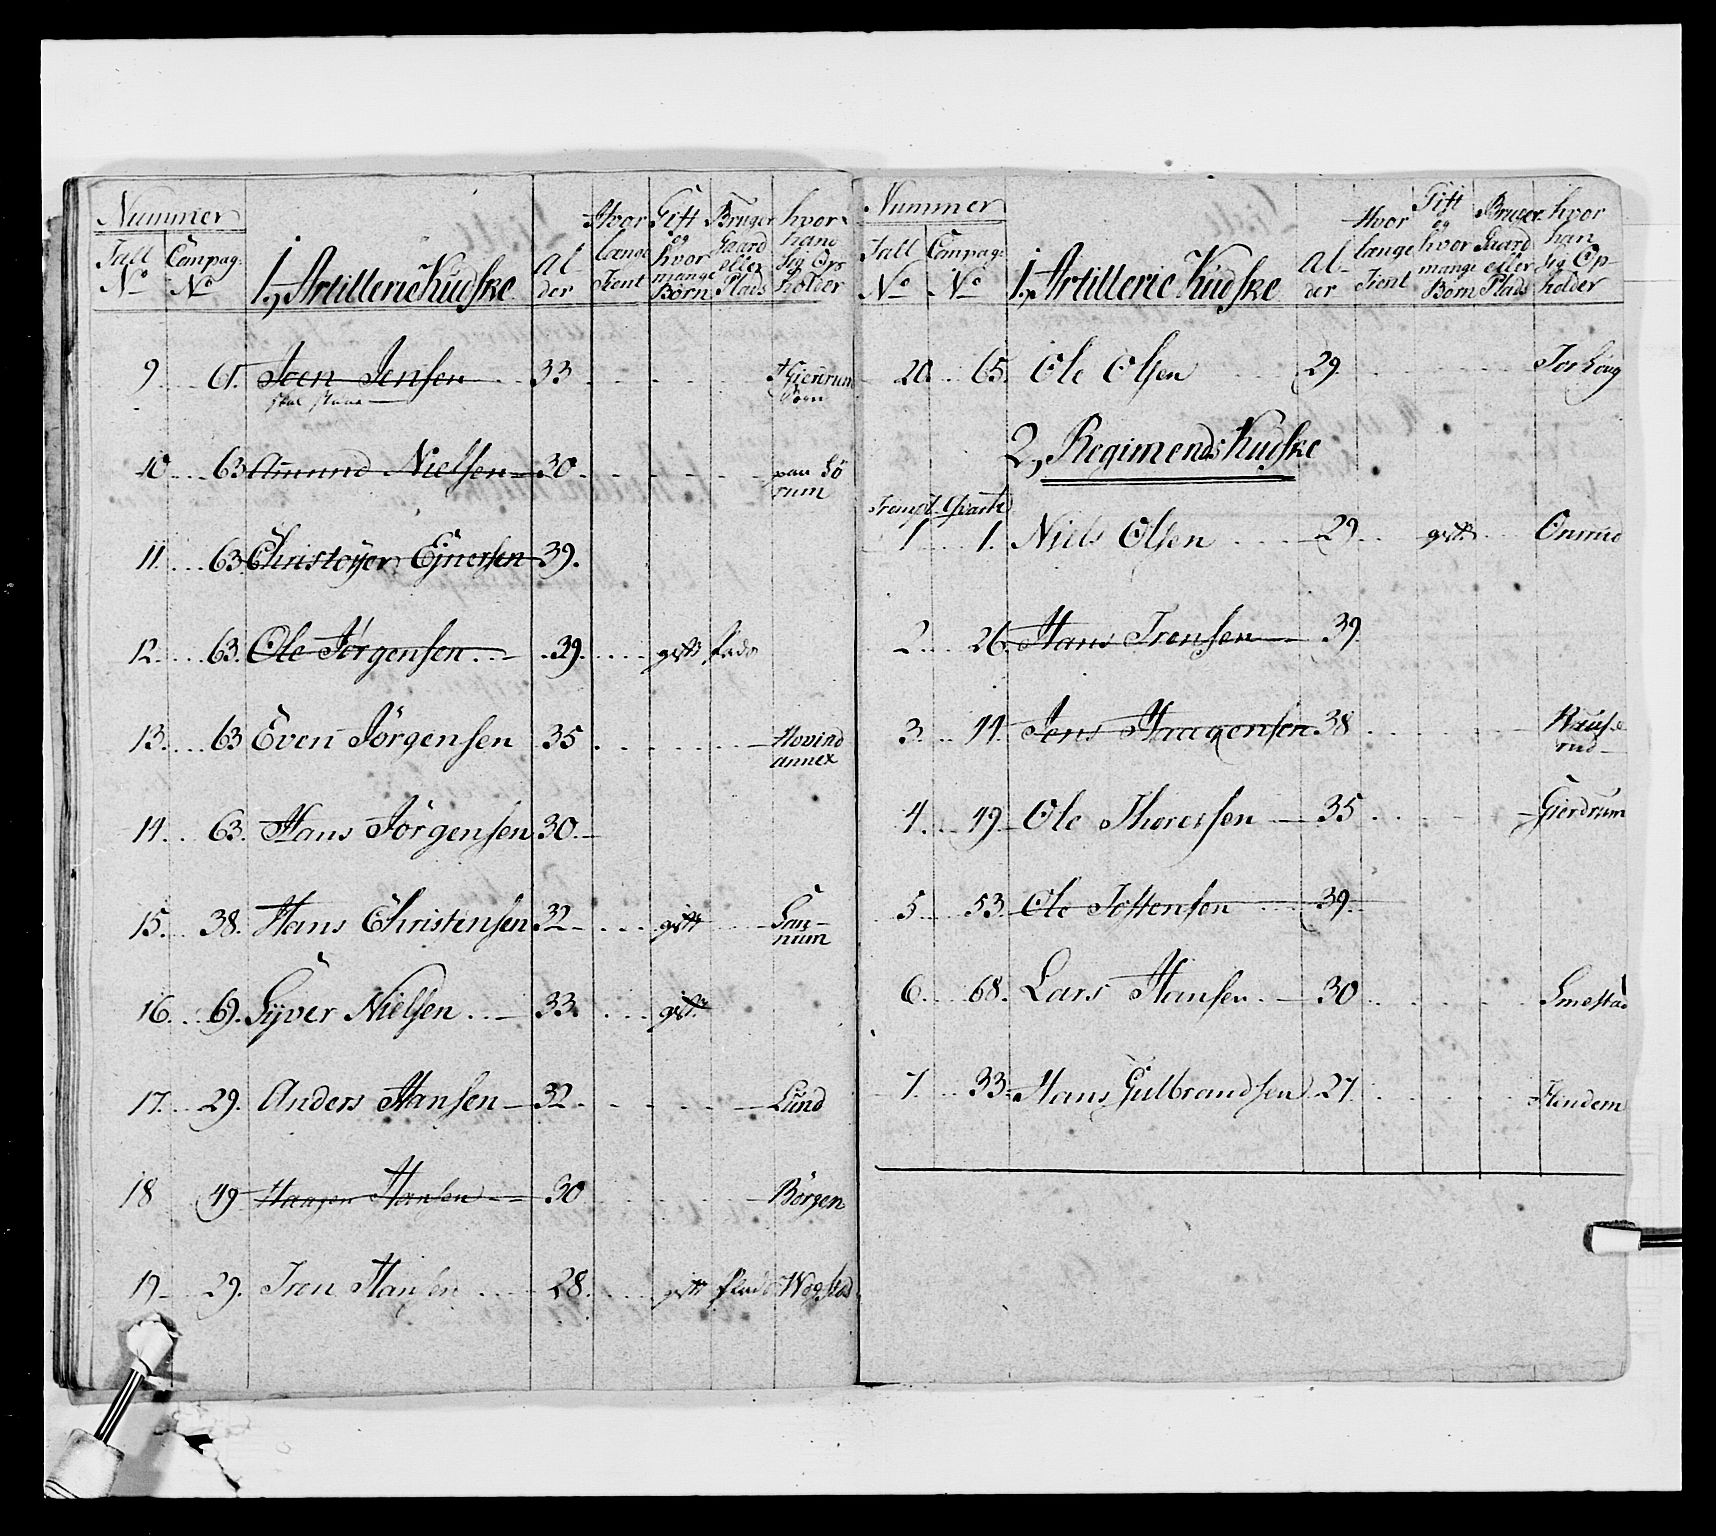 Nummer
Tall No Compag: No 1, Artillerie Kudske Al-der Hvor længe Tient Gift og hvor mange Børn Bruger Gaard eller Plads hvor hand sig Op holder
9 61. Joen Jensen 33
10 63 Amund Nielsen 30 paa Sö
rum
11. 63 Christopher Ejnersen 39.
12. 63. Ole Jørgensen 39. gift Plads
13. 63 Even Jörgensen 35 Hovind
annex
14. 63. Hans Jörgensen 30.
15. 38. Hans Christensen 32 gift
16. 69. Syver Nielsen 33. gift
17. 29. Anders Hansen 32 Lund
18 49 Haagen Hansen 30 Börgen
19 29. Iven Hansen 28. gift Plads Wogstad
Nummer
Tall No Compag: No 1, Artillerie Kudske Al-der Hvor længe Tient Gift og hvor mange Børn Bruger Gaard eller Plads hvor han sig Op-holder
20. 65. Ole Olsen 29.
2, Regiments Kudske
1 1. Niels Olsen 29 gift Onsrud
2. 26. Hans Iversen 39
3. 44. Jens Haagensen 38
4. 49. Ole Thoresen 35 Gierdrum
5. 53. Ole Tostensen 39.
6. 68. Lars Hansen 30 Smestad
7. 33. Hans Gulbrandsen 27.